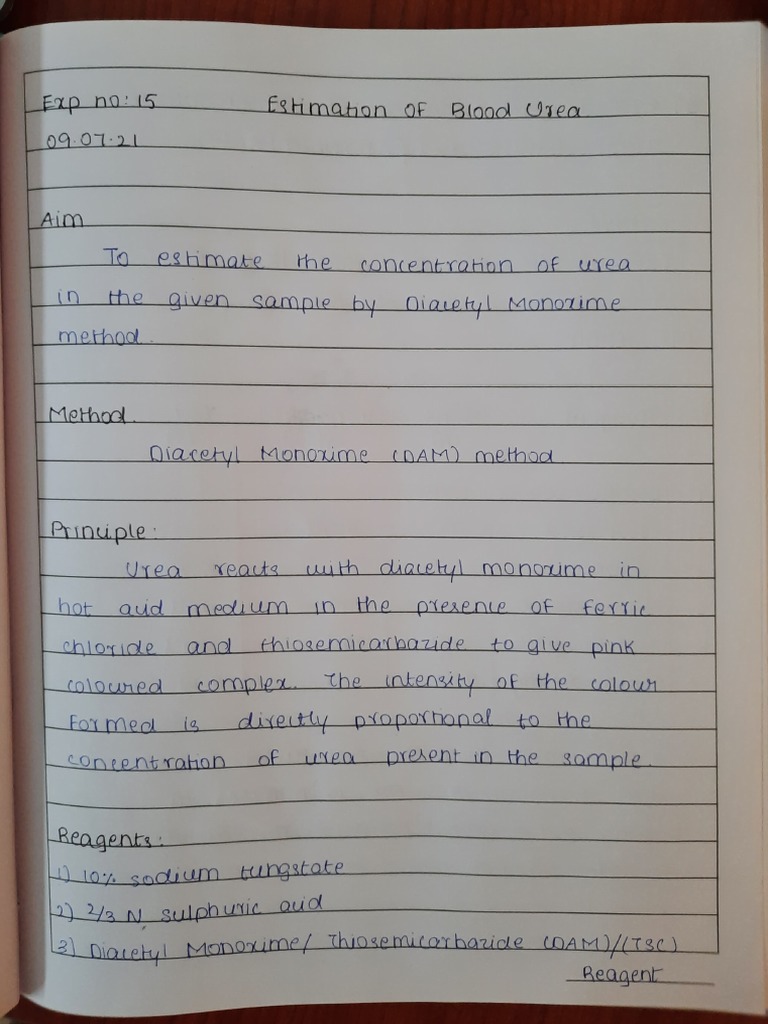 Exp no: 15 Estimation of Blood Urea
09.07.21
Aim
To estimate the concentration of urea
in the given sample by Diacetyl Monoxime
method.
Method.
Diacetyl Monoxime (DAM) method
Principle:
Urea reacts with diacetyl monoxime in
hot acid medium in the presence of ferric
chloride and thiosemicarbazide to give pink
coloured complex. The intensity of the colour
formed is directly proportional to the
concentration of urea present in the sample.
Reagents:
1) 10% sodium tungstate
2) 2/3 N sulphuric acid
3) Diacetyl Monoxime/ Thiosemicarbazide (DAM)/(TSC)
Reagent